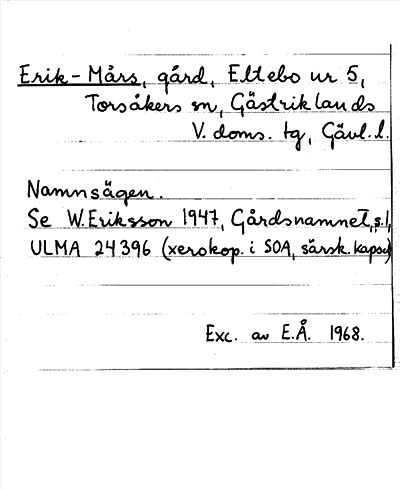 Erik-Mårs, gård, Eltebo nr 5,
Torsåkers sn, Gästriklands
V. doms. tg, Gävl. l.
Namnsägen.
Se W. Eriksson 1947, Gårdsnamnet, s. 1,
ULMA 24396 (xerokop. i SOA, särsk. kapsel)
Exc. av E.Å. 1968.